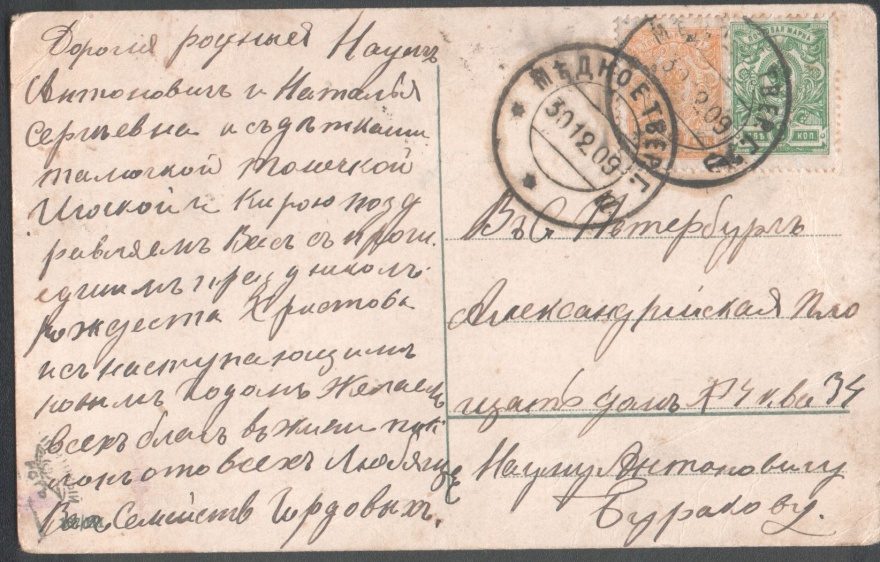 Дорогия родныя Наумъ
Антоновичъ и Наталья
Сергѣевна и съ дѣтками
Тонечкой
и Кирою позд
равляемъ Васъ съ прош
едшимъ праздникомъ
рождества Христова
и съ наступающимъ
новымъ годомъ Желаемъ
всехъ благъ въ жизни
отъ всехъ Любящ
Васъ Семейств Гордовыхъ.
МѢДНОЕ ТВЕР. Г.
30 12 09
ТВЕР. Г.
30 12 09
ПОЧТОВАЯ МАРКА
1 КОП.
Въ С Петербургъ
Александрійская пло
щать домъ № 4 ква 34
Науму Антоновичу
Буракову.